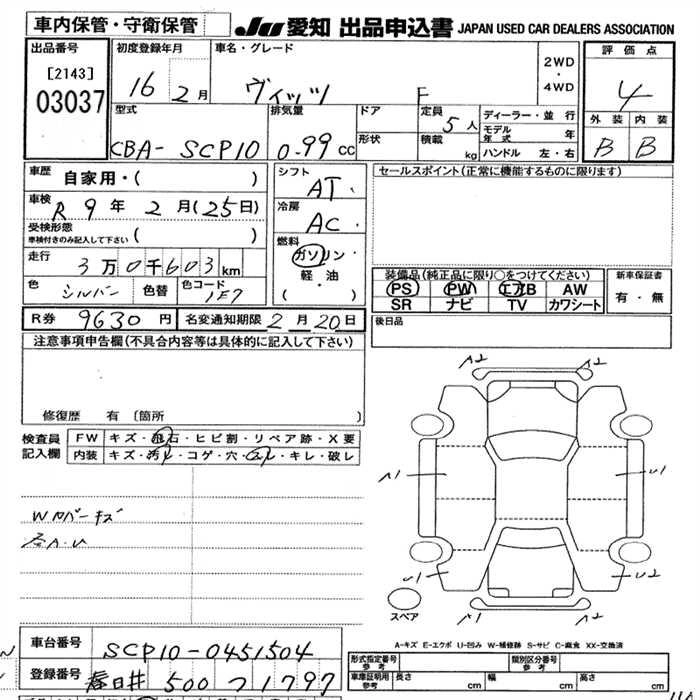 車内保管・守衛保管 JU 愛知 出品申込書 JAPAN USED CAR DEALERS ASSOCIATION
出品番号 初度登録年月 車名・グレード 2WD・4WD 評価点
[2143] 16 2月 ヴィッツ F 4
03037
型式 排気量 ドア 定員 5人 ディーラー・並行 外装 内装
モデル年式 年
CBA- SCP10 0.99cc 形状 積載 kg ハンドル 左・右 B B
車歴 自家用・( ) シフト AT セールスポイント(正常に機能するものに限ります)
車検 R9年 2月(25日) 冷房 AC
受検形態 ( )
車検付きのみ記入して下さい
燃料
走行 3万0千603km ガソリン・軽・油 ( )
装備品(純正品に限り○をつけてください) 新車保証書
色 シルバー 色替 色コード 1E7 PS PW エアB AW 有・無
SR ナビ TV カワシート
R券 9630円 名変通知期限 2月20日 後日品
注意事項申告欄(不具合内容等は具体的に記入して下さい)
修復歴 有 〔箇所 〕
A2 A2
検査員記入欄 FW キズ・飛石・ヒビ割・リペア跡・X要
内装 キズ・汚れ・コゲ・穴・スレ・キレ・破レ
A1 U1
Wカバーキズ
各A.U
U1 U2
スペア
A2 A1
A-キズ E-エクボ U-凹み W-補修跡 S-サビ C-腐食 XX-交換済
車台番号 SCP10-0451504
登録番号 春日井 500 フ 1797
形式指定番号 参考 類別区分番号 参考
車庫証明用 参考 長さ cm 幅 cm 高さ cm